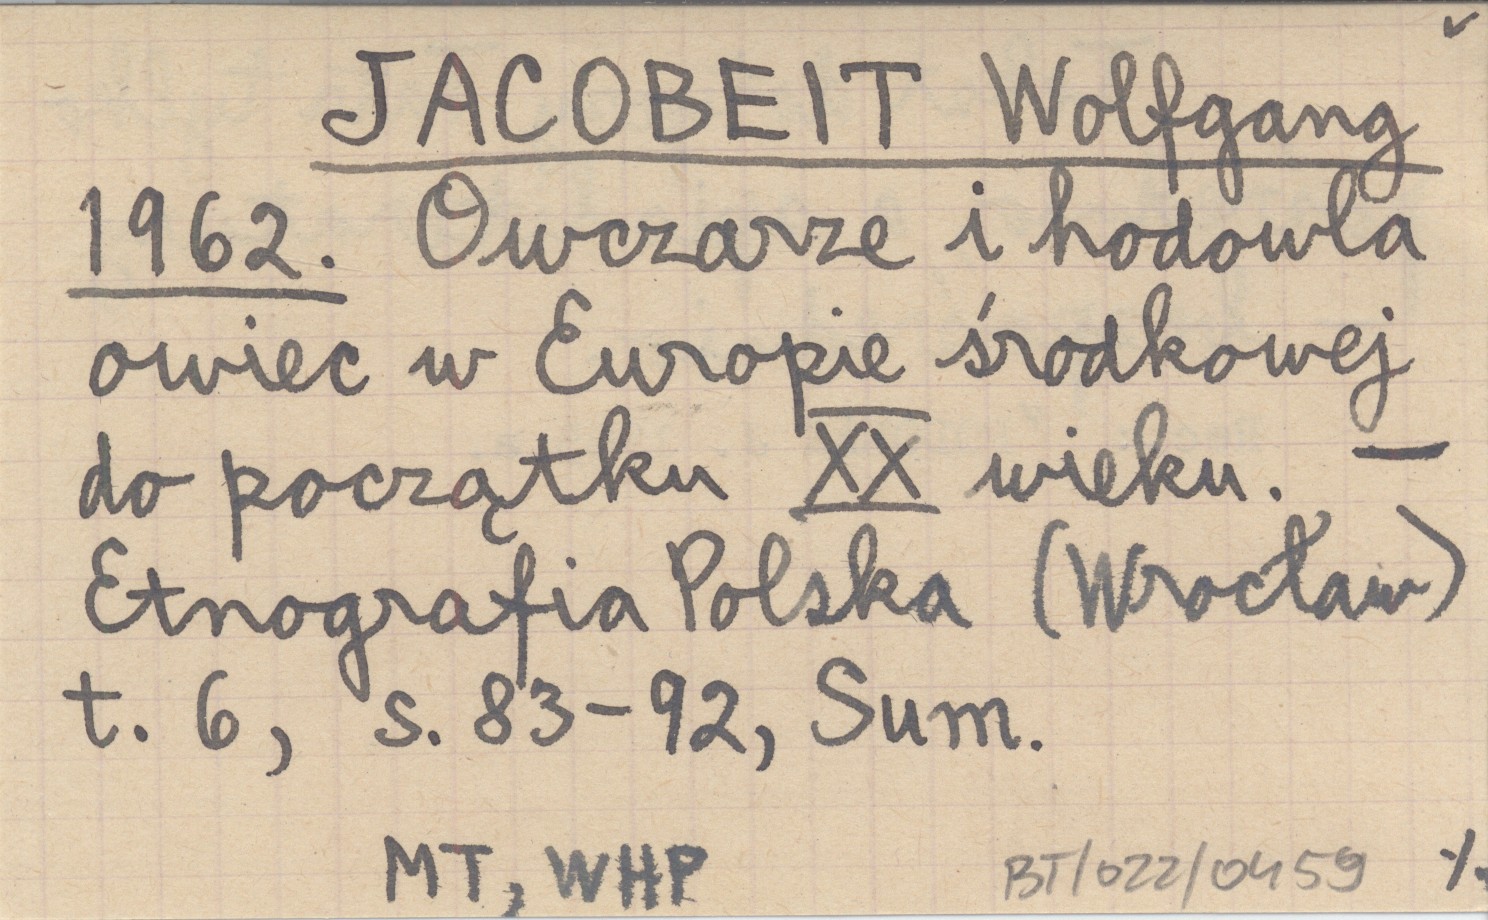 JACOBEIT Wolfgang
1962. Owczarze i hodowla
owiec w Europie środkowej
do początku XX wieku. —
Etnografia Polska (Wrocław)
t. 6, s. 83-92, Sum.
MT, WHP
BT/022/0459 ./.